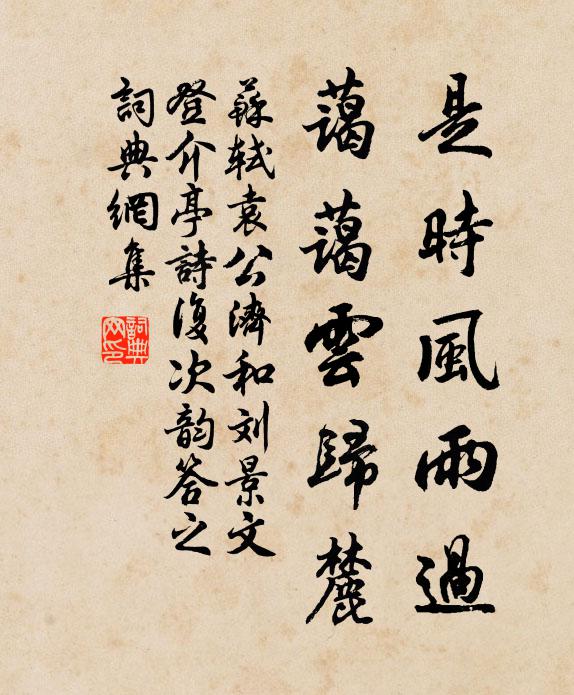 是時風雨過
藹藹雲歸麓
蘇軾袁公濟和刘景文
登介亭詩復次韵答之
詞典網集
詞典网印